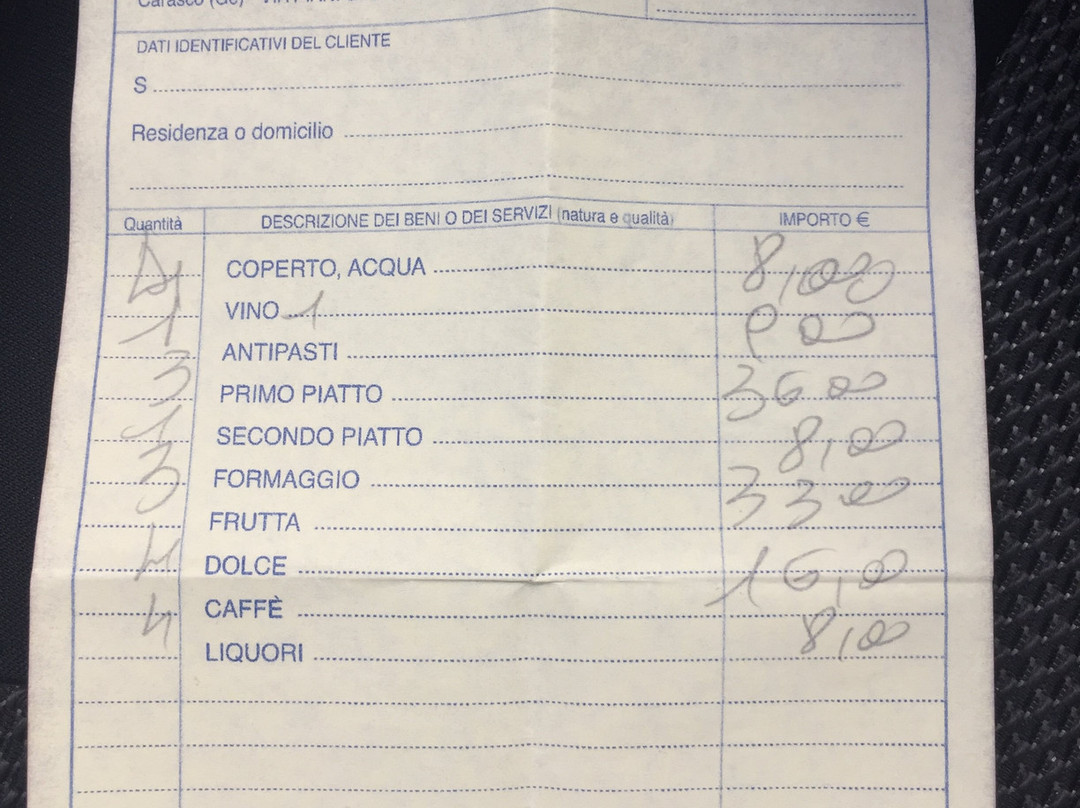 Carasco (Ge)
DATI IDENTIFICATIVI DEL CLIENTE
S
Residenza o domicilio
Quantità DESCRIZIONE DEI BENI O DEI SERVIZI (natura e qualità) IMPORTO €
4 COPERTO, ACQUA 8,00
1 VINO 1 00
ANTIPASTI
3 PRIMO PIATTO 36 00
1 SECONDO PIATTO 8,00
3 FORMAGGIO 33 00
FRUTTA
4 DOLCE 16,00
4 CAFFÈ 8,00
LIQUORI